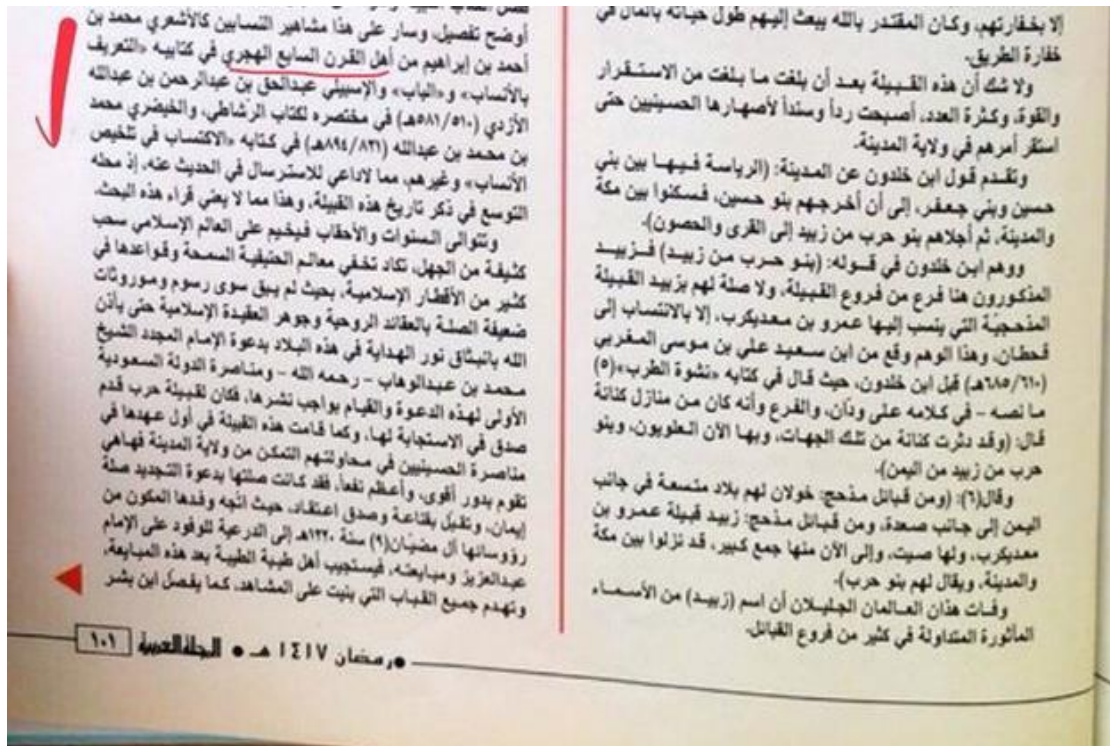 إلا بخفارتهم، وكان المقتدر بالله يبعث إليهم طول حياته بالمال في
خفارة الطريق.
ولا شك أن هذه القبيلة بعد أن بلغت ما بلغت من الاستقرار
والقوة، وكثرة العدد، أصبحت ردأ وسندأ لأصهارها الحسينيين حتى
استقر أمرهم في ولاية المدينة.
وتقدم قول ابن خلدون عن المدينة: (الرياسة فيها بين بني
حسين وبني جعفر، إلى أن أخرجهم بنو حسين، فسكنوا بين مكة
والمدينة، ثم أجلاهم بنو حرب من زبيد إلى القرى والحصون).
ووهم ابن خلدون في قوله: (بنو حرب من زبيد) فزبيد
المذكورون هنا فرع من فروع القبيلة، ولا صلة لهم بزبيد القبيلة
المذحجية التي ينسب إليها عمرو بن معديكرب، إلا بالانتساب إلى
قحطان، وهذا الوهم وقع من ابن سعيد علي بن موسى المغربي
(٦١٠/٦٨٥هـ) قبل ابن خلدون، حيث قال في كتابه «نشوة الطرب»(٥)
ما نصه - في كلامه على ودّان، والفرع وأنه كان من منازل كنانة
قال: (وقد دثرت كنانة من تلك الجهات، وبها الآن العلويون، وبنو
حرب من زبيد من اليمن).
وقال(٦): (ومن قبائل مذحج: خولان لهم بلاد متسعة في جانب
اليمن إلى جانب صعدة، ومن قبائل مذحج: زبيد قبيلة عمرو بن
معديكرب، ولها صيت، وإلى الآن منها جمع كبير، قد نزلوا بين مكة
والمدينة، ويقال لهم بنو حرب).
وفات هذان العالمان الجليلان أن اسم (زبيد) من الأسماء
المأثورة المتداولة في كثير من فروع القبائل.
أوضح تفصيل، وسار على هذا مشاهير النسابين كالأشعري محمد بن
أحمد بن إبراهيم من أهل القرن السابع الهجري في كتابيه «التعريف
بالأنساب» و«الباب» والإسبيلي عبدالحق بن عبدالرحمن بن عبدالله
الأزدي (٥١٠/٥٨١هـ) في مختصره لكتاب الرشاطي، والخيضري محمد
بن محمد بن عبدالله (٨٢١/٨٩٤هـ) في كتابه «الاكتساب في تلخيص
الأنساب» وغيرهم، مما لاداعي للاسترسال في الحديث عنه، إذ محله
التوسع في ذكر تاريخ هذه القبيلة، وهذا مما لا يعني قراء هذه البحث.
وتتوالى السنوات والأحقاب فيخيم على العالم الإسلامي سحب
كثيفة من الجهل، تكاد تخفي معالم الحنيفية السمحة وقواعدها في
كثير من الأقطار الإسلامية، بحيث لم يبق سوى رسوم وموروثات
ضعيفة الصلة بالعقائد الروحية وجوهر العقيدة الإسلامية حتى يأذن
الله بانبثاق نور الهداية في هذه البلاد بدعوة الإمام المجدد الشيخ
محمد بن عبدالوهاب - رحمه الله - ومناصرة الدولة السعودية
الأولى لهذه الدعوة والقيام بواجب نشرها، فكان لقبيلة حرب قدم
صدق في الاستجابة لها، وكما قامت هذه القبيلة في أول عهدها في
مناصرة الحسينيين في محاولتهم التمكن من ولاية المدينة فهاهي
تقوم بدور أقوى، وأعظم نفعاً، فقد كانت صلتها بدعوة التجديد صلة
إيمان، وتقبل بقناعة وصدق اعتقاد، حيث اتجه وفدها المكون من
رؤوسائها آل مضيّان(٩) سنة ١٢٢٠هـ إلى الدرعية للوفود على الإمام
عبدالعزيز ومبايعته، فيستجيب أهل طيبة الطيبة بعد هذه المبايعة،
وتهدم جميع القباب التي بنيت على المشاهد، كما يفصل ابن بشر
رمضان ١٤١٧ هـ ● المجلة العربية ١٠١